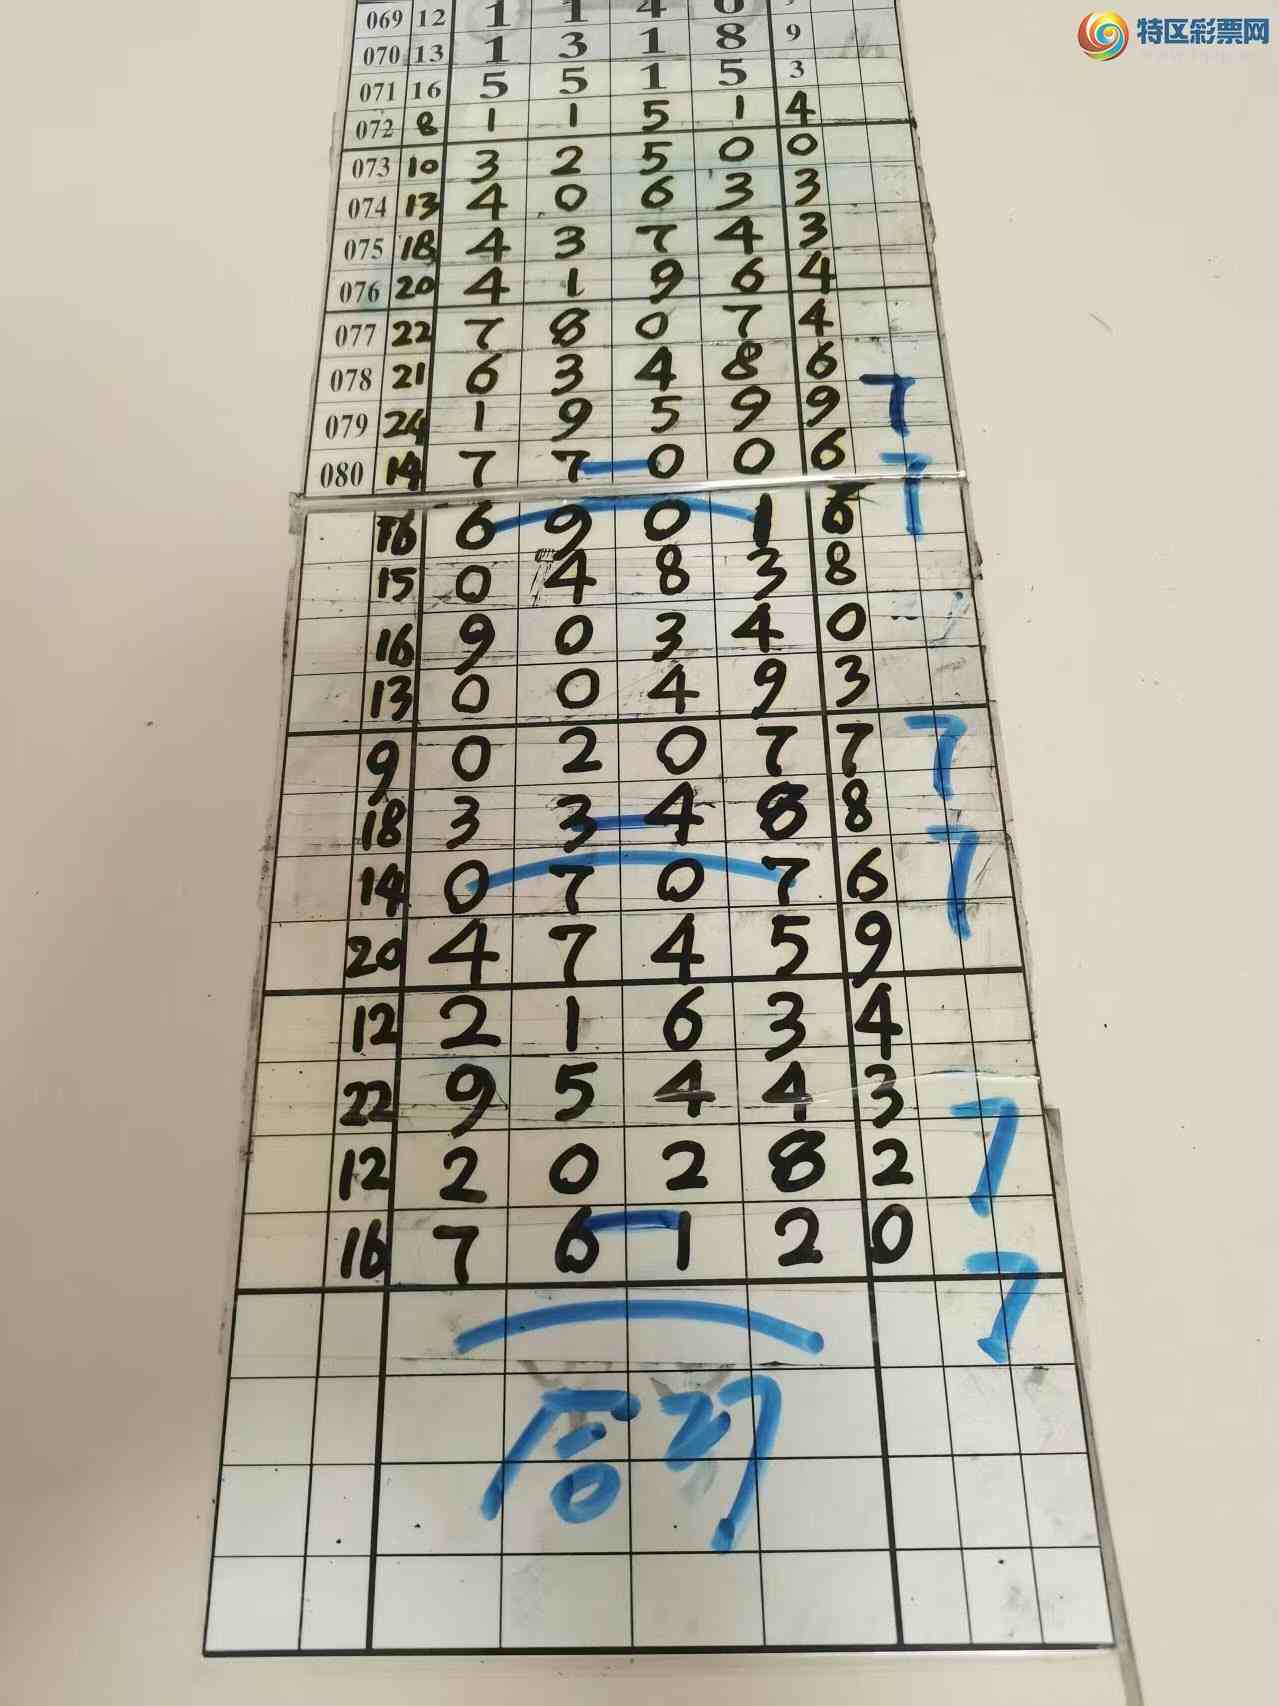 特区彩票网
069 12 1 1 4 0
070 13 1 3 1 8 9
071 16 5 5 1 5 3
072 8 1 1 5 1 4
073 10 3 2 5 0 0
074 13 4 0 6 3 3
075 18 4 3 7 4 3
076 20 4 1 9 6 4
077 22 7 8 0 7 4
078 21 6 3 4 8 6
079 24 1 9 5 9 9 7
080 14 7 7 0 0 6
16 6 9 0 1 6 7
15 0 4 8 3 8
16 9 0 3 4 0
13 0 0 4 9 3
9 0 2 0 7 7 7
18 3 3 4 8 8
14 0 7 0 7 6 7
20 4 7 4 5 9
12 2 1 6 3 4
22 9 5 4 4 3
12 2 0 2 8 2 7
16 7 6 1 2 0
7